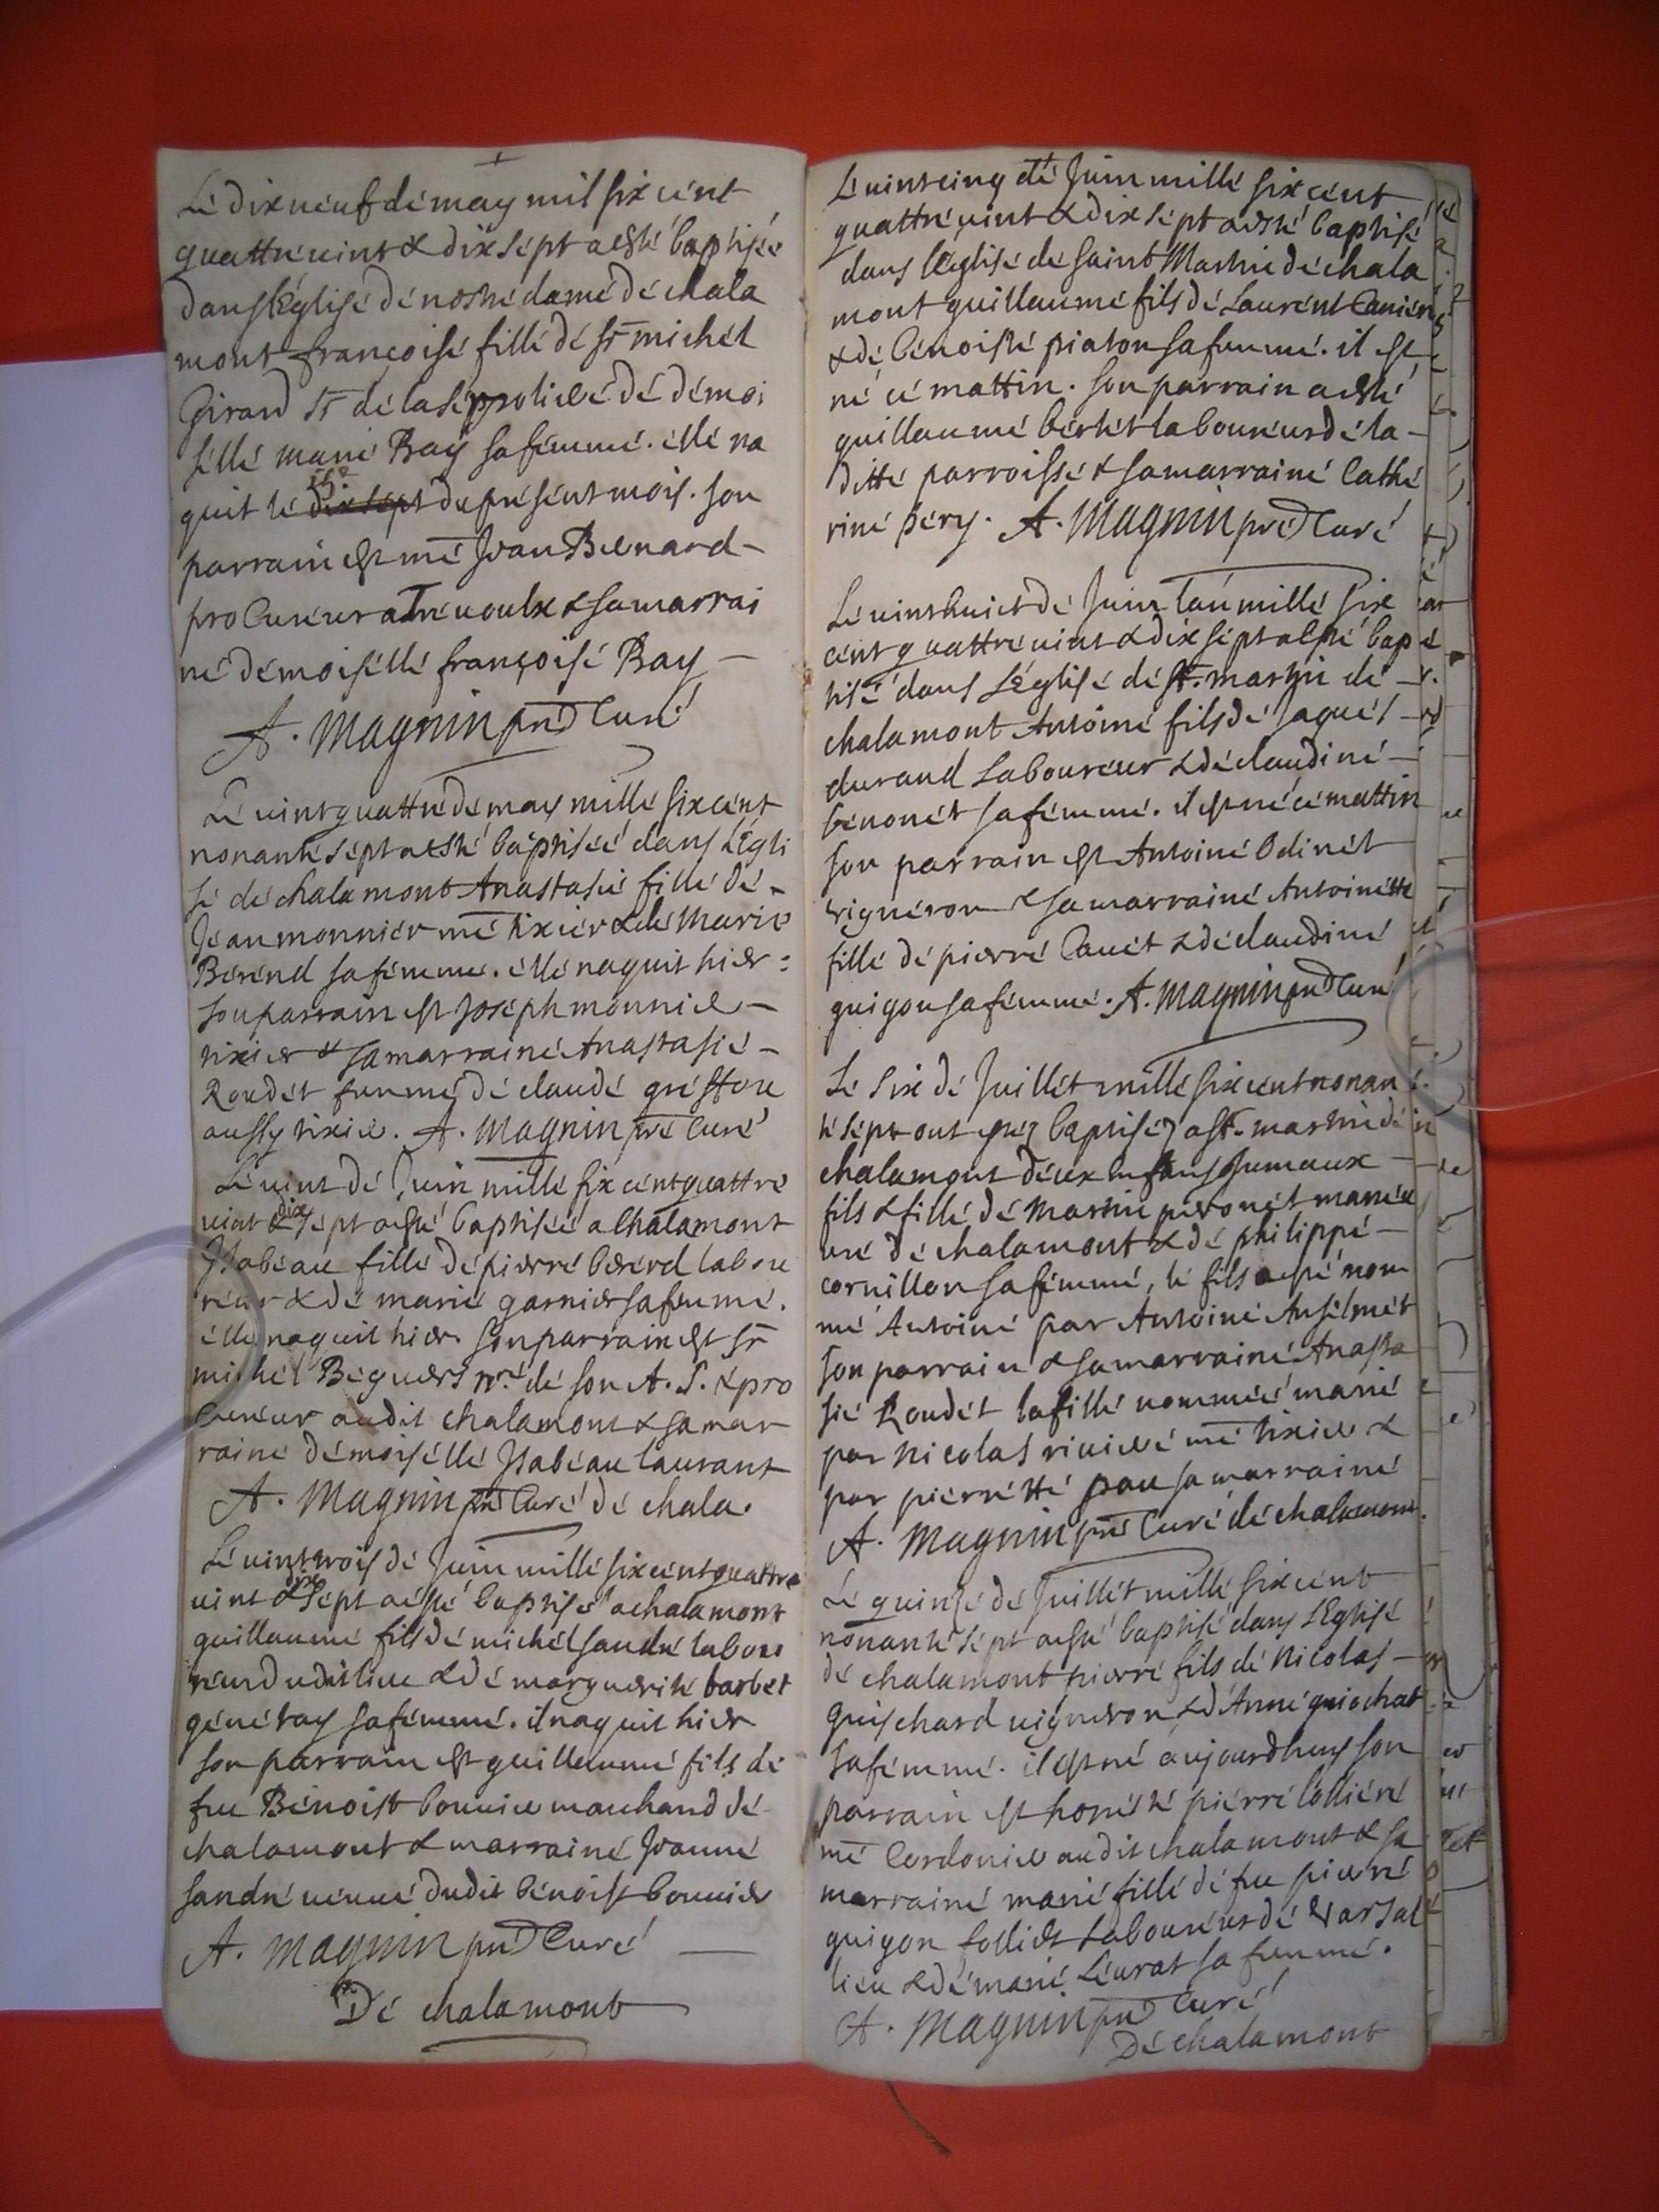 Le dix neuf de may mil six cent
quattre vint & dix sept a esté baptisée
dans l'Église de nostre dame de chala
mont françoise fille de sr michel
Girard sr de la de demoi
selle marie Ray sa femme. elle na
quit le dix sept du present mois. son
parrain est me Jean Bernard
procureur a Trevoulx & sa marrai
ne demoiselle françoise Ray
A. Magnin pre Curé
Le vint quattre de may mille six cent
nonante sept a esté baptisée dans l'Égli
se de chalamont Anastasie fille de
Jean monnier me tixier & de Marie
Berend sa femme. elle naquit hier
son parrain est Joseph monnier
tixier & sa marraine Anastasie
Roudet femme de claude
aussy tixier. A. Magnin pre Curé
Le vint de Juin mille six cent quattre
vint & dix sept a esté baptisée a Chalamont
Isabeau fille de pierre laboureur
reur & de marie garnier sa femme.
elle naquit hier son parrain est sr
michel Beguers nre de son A. S. & pro
cureur audit chalamont & sa mar
raine demoiselle Isabeau laurant
A. Magnin pre Curé de chala.
Le vint trois de Juin mille six cent quattre
vint & dix sept a esté baptisé a chalamont
guillaume fils de michel sandre labou
reur dudit lieu & de marguerite barbet
géneray sa femme. il naquit hier
son parrain est guillaume fils de
feu Benoist bouvier marchand de
chalamont & marraine Jeanne
sandre veuve dudit benoist bouvier
A. Magnin pre Curé
De chalamont
Le vint cinq de Juin mille six cent
quattre vint & dix sept a esté baptisé
dans l'église de saint Martin de chala
mont guillaume fils de Laurent
& de benoiste piaton sa femme. il est
né ce mattin. son parrain a esté
guillaume bertet laboureur de la
ditte parroisse & sa marraine Cathe
rine pery. A. Magnin pre Curé
Le vint huict de Juin l'an mille six
cent quattre vint & dix sept a esté bap
tisé dans L'église de st. martin de
chalamont Antoine fils de Jaques
durand Laboureur & de claudine
benonet sa femme. il est né ce mattin
son parrain est Antoine Odinet
vigneron & sa marraine Antoinette
fille de pierre Cavet & de claudine
guigou sa femme. A. Magnin pre Curé
Le Six de Juillet mille six cent nonan
te sept ont estez baptisez a st. martin de
chalamont deux enfans Jumaux
fils & fille de Martin peronet
de chalamont & de philippe
cornillon sa femme, le fils a esté nom
mé Antoine par Antoine Anselmet
son parrain & sa marraine Anasta
sie Roudet la fille nommée marie
par Nicolas riviere me tixier &
par pierrette pau sa marraine
A. Magnin pre Curé de chalamont.
Le quinze de Juillet mille six cent
nonante sept a esté baptisé dans L'Eglise
de chalamont pierre fils de Nicolas
guischard vigneron & d'Anne guiochat
sa femme. il est né aujourdhuy son
parrain est honeste pierre
me Cordonier audit chalamont & sa
marraine marie fille de feu pierre
guigon Laboureur de
lieu & de marie Leurat sa femme.
A. Magnin pre Curé
De chalamont